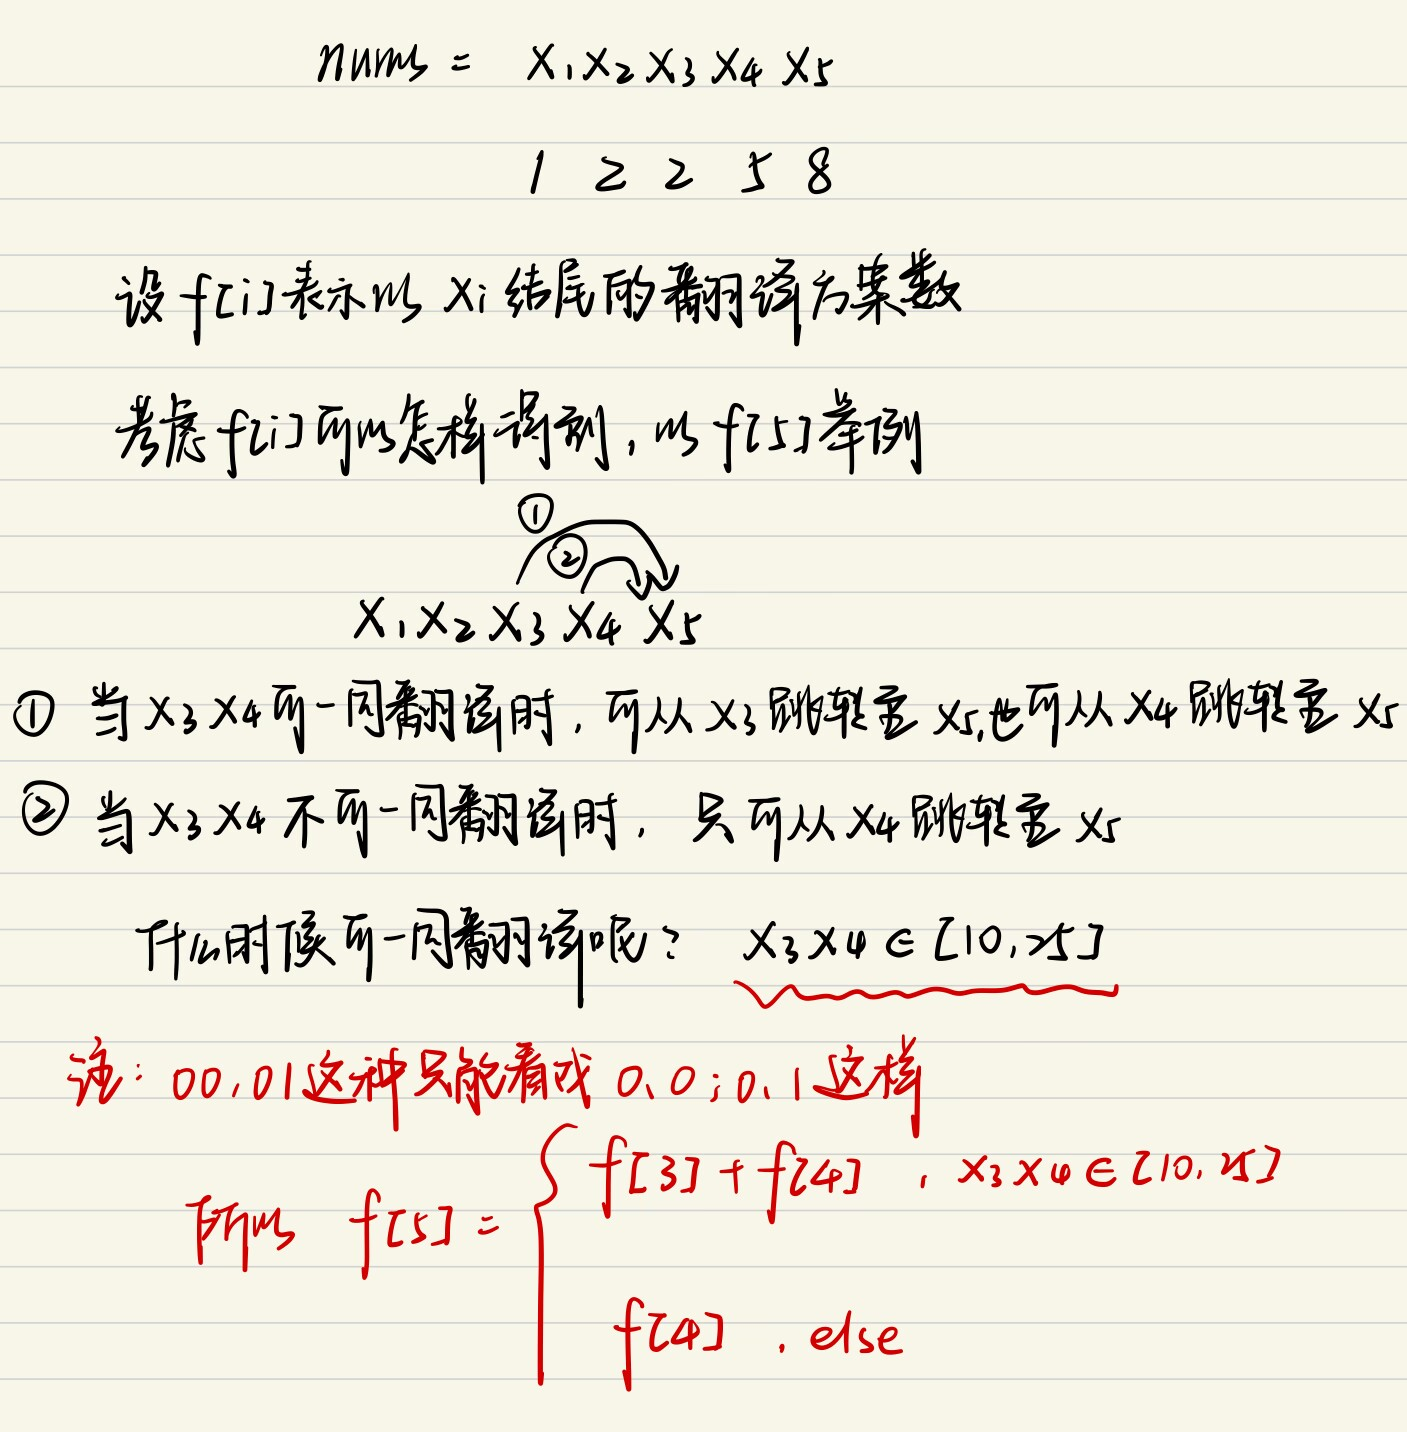 nums = X₁X₂X₃X₄X₅
1 2 2 5 8
设f[i]表示以Xi结尾的翻译方案数
考虑f[i]可以怎样得到，以f[5]举例
① ②
X₁X₂X₃X₄X₅
① 当X₃X₄可一同翻译时，可从X₃跳转至X₅,也可从X₄跳转至X₅
② 当X₃X₄不可一同翻译时，只可从X₄跳转至X₅
什么时候可一同翻译呢？ X₃X₄∈[10,25]
注：00,01这种只能看成0、0；0、1这样
f[3]+f[4] , X₃X₄∈[10,25]
所以 f[5] = {
f[4] , else